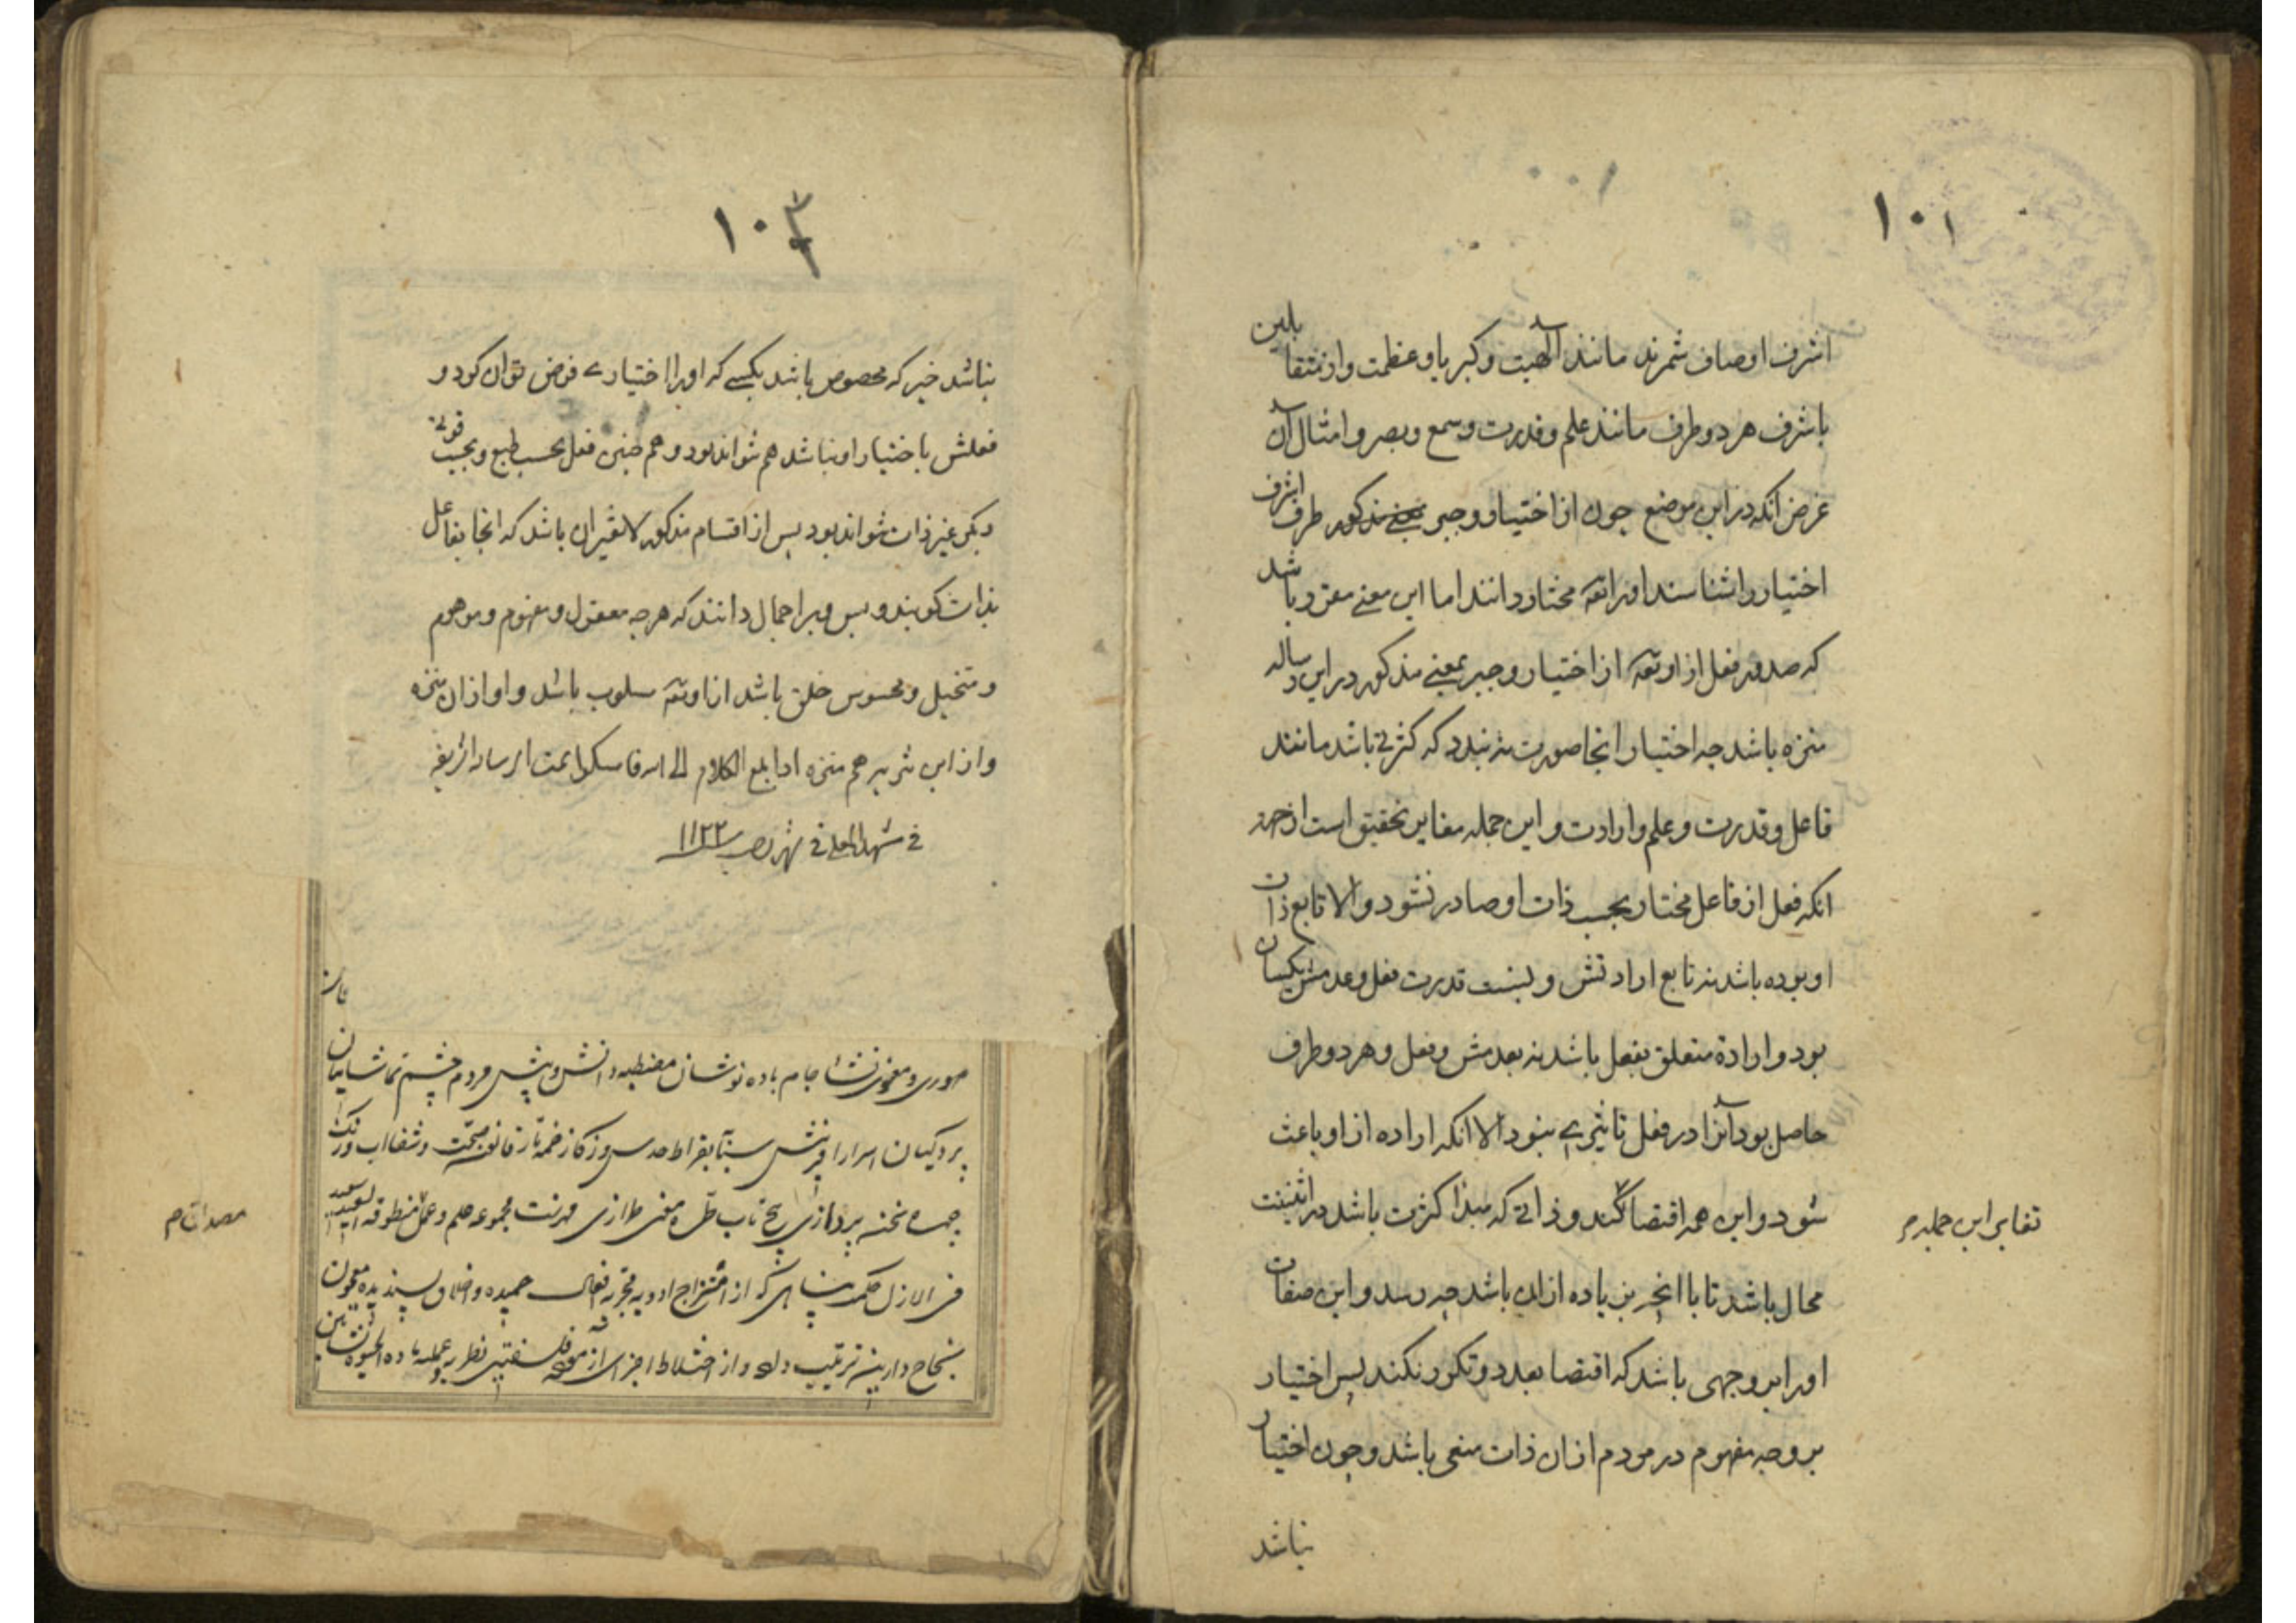 ۱۰۱
اشرف اوصاف شمرند مانند آلهیت و کبریا و عظمت و از متقابلین
باشرف هر دو طرف مانند علم و قدرت و سمع و بصر و امثال آن
غرض انکه در این موضع چون از اختیار و جبر مذکور طرف اشرف
اختیار را شناسند او را تعه مختار دانند اما این معنے مقرر باشد
که صدور فعل از او تعه از اختیار و جبر بمعنے مذکور در این رساله
منزه باشد چه اختیار انجا صورت بندد که کثرتے باشد مانند
فاعل و قدرت و علم و ارادت و این جمله مغایر تحقیق است از جهة
انکه فعل از فاعل مختار بحسب ذات او صادر نشود و الا تابع ذات
او بوده باشد نه تابع ارادتش و بنسبت قدرت فعل و عدمش یکسان
بود و ارادة متعلق بفعل باشد نه بعدمش و بفعل و هر دو طرف
حاصل بود آنرا در فعل تاثیرے نبود الا انکه اراده از او باعث
شود و این همه اقتضا کند و ذاتے که مبدا کثرت باشد در اثنینیت
تغایر این جمله م
محال باشد تا با انچه زیاده از ان باشد چه رسد و این صفات
او را بر وجهی باشد که اقتضا تعدد و تکثر نکند پس اختیار
بر وجه مفهوم در مردم از ان ذات منفی باشد و چون اختیار
نباشد
۱۰۳
نباشد خیر که مخصوص باشد بکسے که او را اختیارے فرض توان کرد و
فعلش باختیار او نباشد هم نتواند بود و هم چنین فعل بحسب طبع و بحسب قوتے
دیگر غیر ذات نتواند بود پس از اقسام مذکور لایقتر ان باشد که انجا بفاعل
بذات کویند و بس و بر اجمال دانند که هر چه معقول و مفهوم و موهوم
و متخیل و محسوس خلق باشد از او تعه مسلوب باشد و او از ان منزه
و از این تنزیه هم منزه اذا بلغ الکلام الی الله فامسکوا تمت الرساله الشریفه
فے فے شهر ۱۱۲۲
صوری و معنوی نشاء جام باده نوشان مصطبه دانش و بینش مردم چشم تماشاییان
پردکیان اسرار افرینش بقراط حدس قانون صحت و شفا اب و رنک
چهره پردازی تاب طره معنی طرازی فهرست مجموعه علم و عمل منطوقه السعید سعید
فی الازل حکمت پناهی که از امتزاج ادویه مجربه افعال حمیده و اخلاق پسندیده معجون
نجاح دارین ترتیب داده و از اختلاط اجزای نظریه و عملیه ماده الحیوة نشاتین